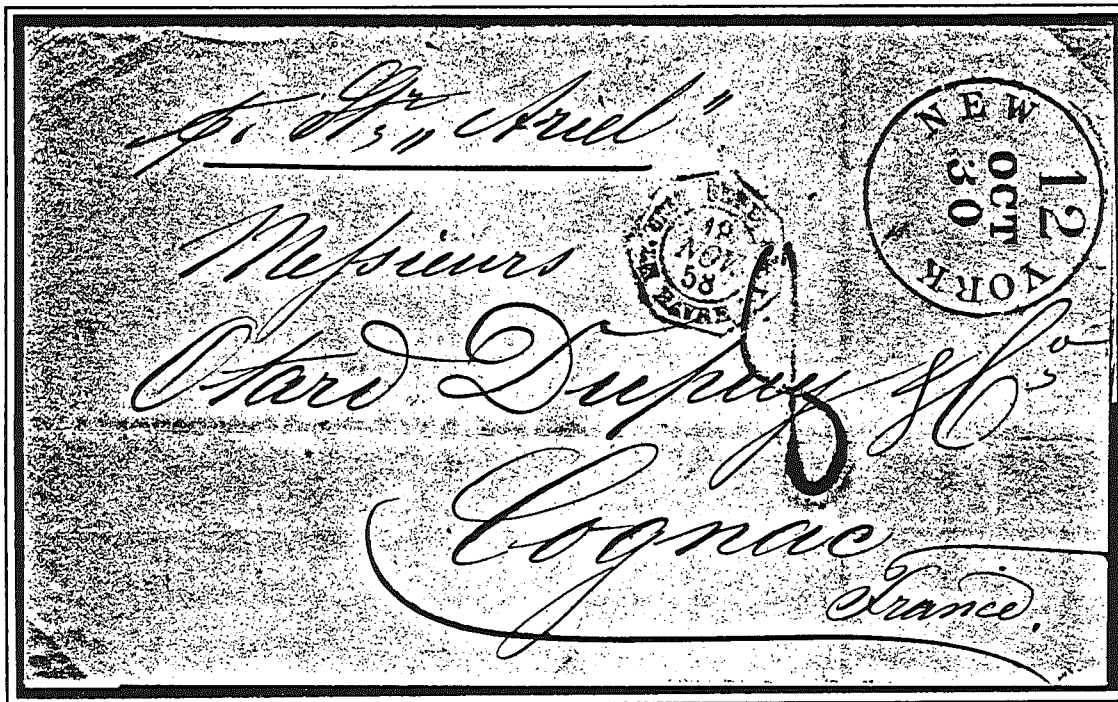 pr. Str. „Ariel"
NEW YORK
12
OCT
30
18
NOV.
58
HAVRE
Messieurs
Otard Dupuy & Co.
8
Cognac
France.